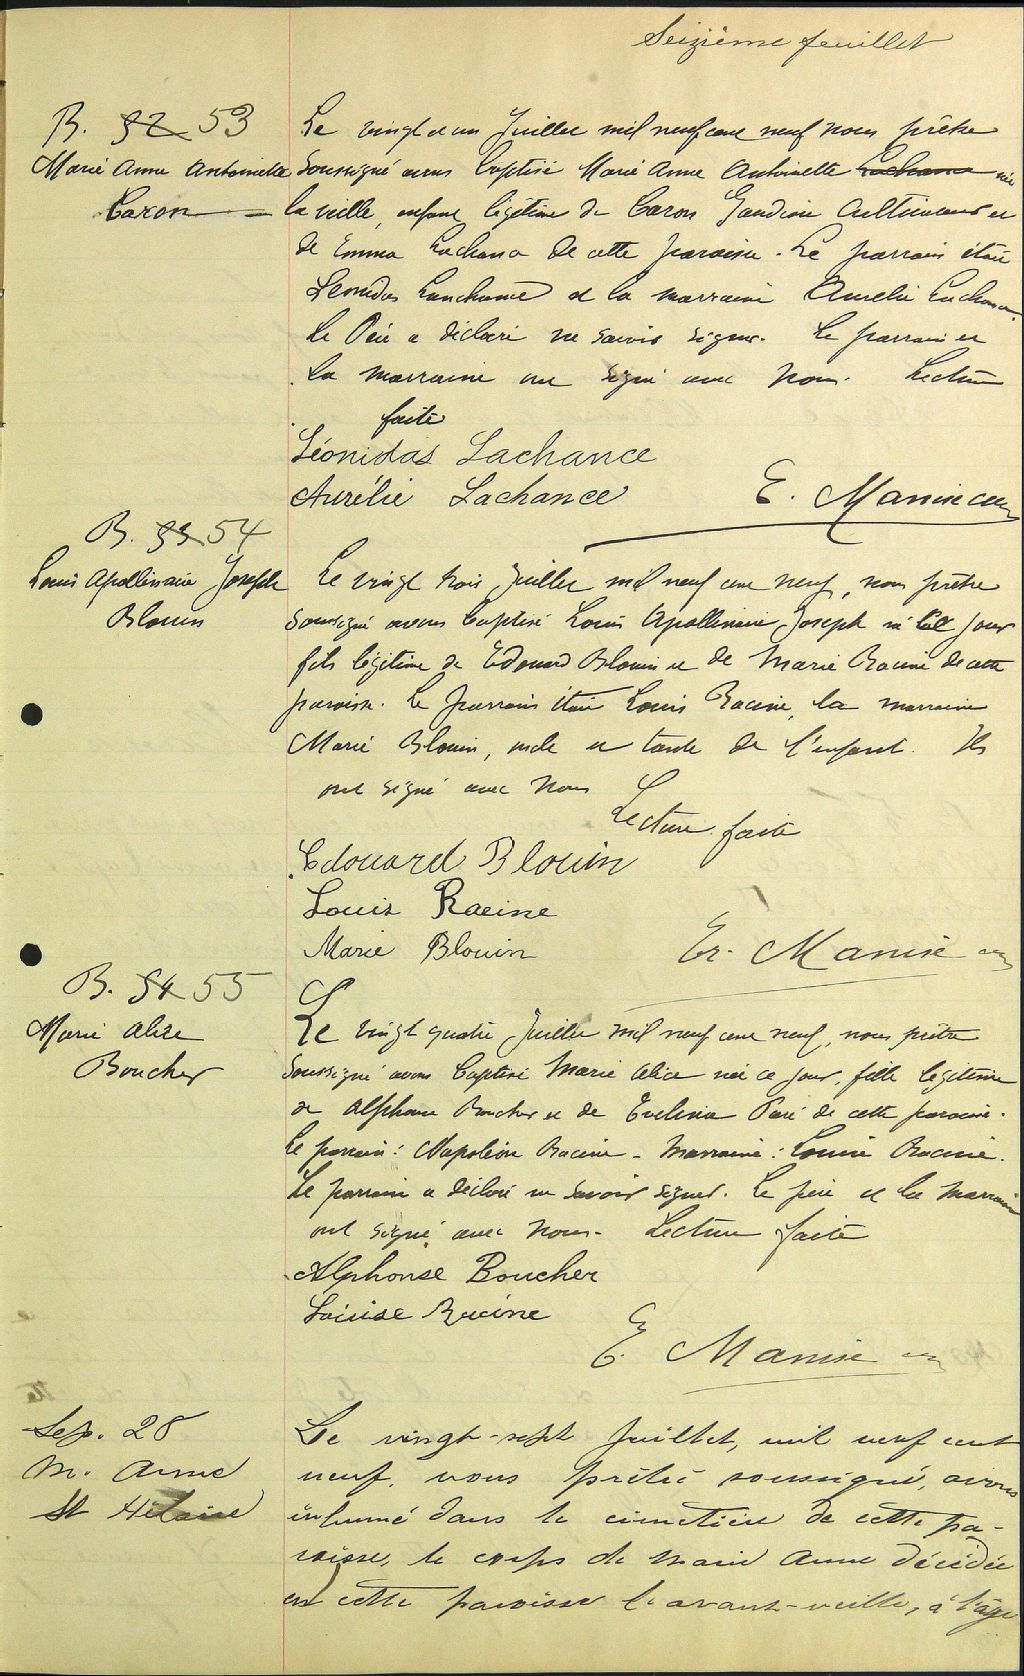 Seizième feuillet
B. 52 53
Marie Anne Antoinette
Caron
Le vingt et un Juillet mil neuf cent neuf nous prêtre
soussigné avons baptisé Marie Anne Antoinette Lachance née
la veille, enfant légitime de Caron Gaudiose Cultivateur et
de Emma Lachance de cette paroisse. Le parrain était
Léonidas Lanchance et la marraine Aurélie Lachance.
Le Père a déclaré ne savoir signer. Le parrain et
la marraine ont signé avec nous. Lecture
faite
Léonidas Lachance
Aurélie Lachance E.
B. 53 54
Louis Apollinaire Joseph
Blouin
Le vingt trois Juillet mil neuf cent neuf, nous prêtre
soussigné avons baptisé Louis Apollinaire Joseph né ce jour
fils légitime de Edouard Blouin et de Marie Racine de cette
paroisse. Le parrain était Louis Racine, la marraine
Marie Blouin, oncle et tante de l'enfant. Ils
ont signé avec nous
Lecture faite
Edouard Blouin
Louis Racine
Marie Blouin
B. 54 55
Marie Alice
Boucher
Le vingt quatre Juillet mil neuf cent neuf, nous prêtre
soussigné avons baptisé Marie Alice née ce jour, fille légitime
de Alphonse Boucher et de Evelina Paré de cette paroisse.
Le parrain : Napoléon Racine - Marraine : Louise Racine.
Le parrain a déclaré ne savoir signer. Le père et la marraine
ont signé avec nous. Lecture faite
Alphonse Boucher
Louise Racine
E.
Sep. 28
M. Anne
St Hilaire
Le vingt-sept Juillet, mil neuf cent
neuf, nous prêtre soussigné, avons
inhumé dans le cimetière de cette pa-
roisse, le corps de Marie Anne décédée
en cette paroisse l'avant-veille, à l'âge